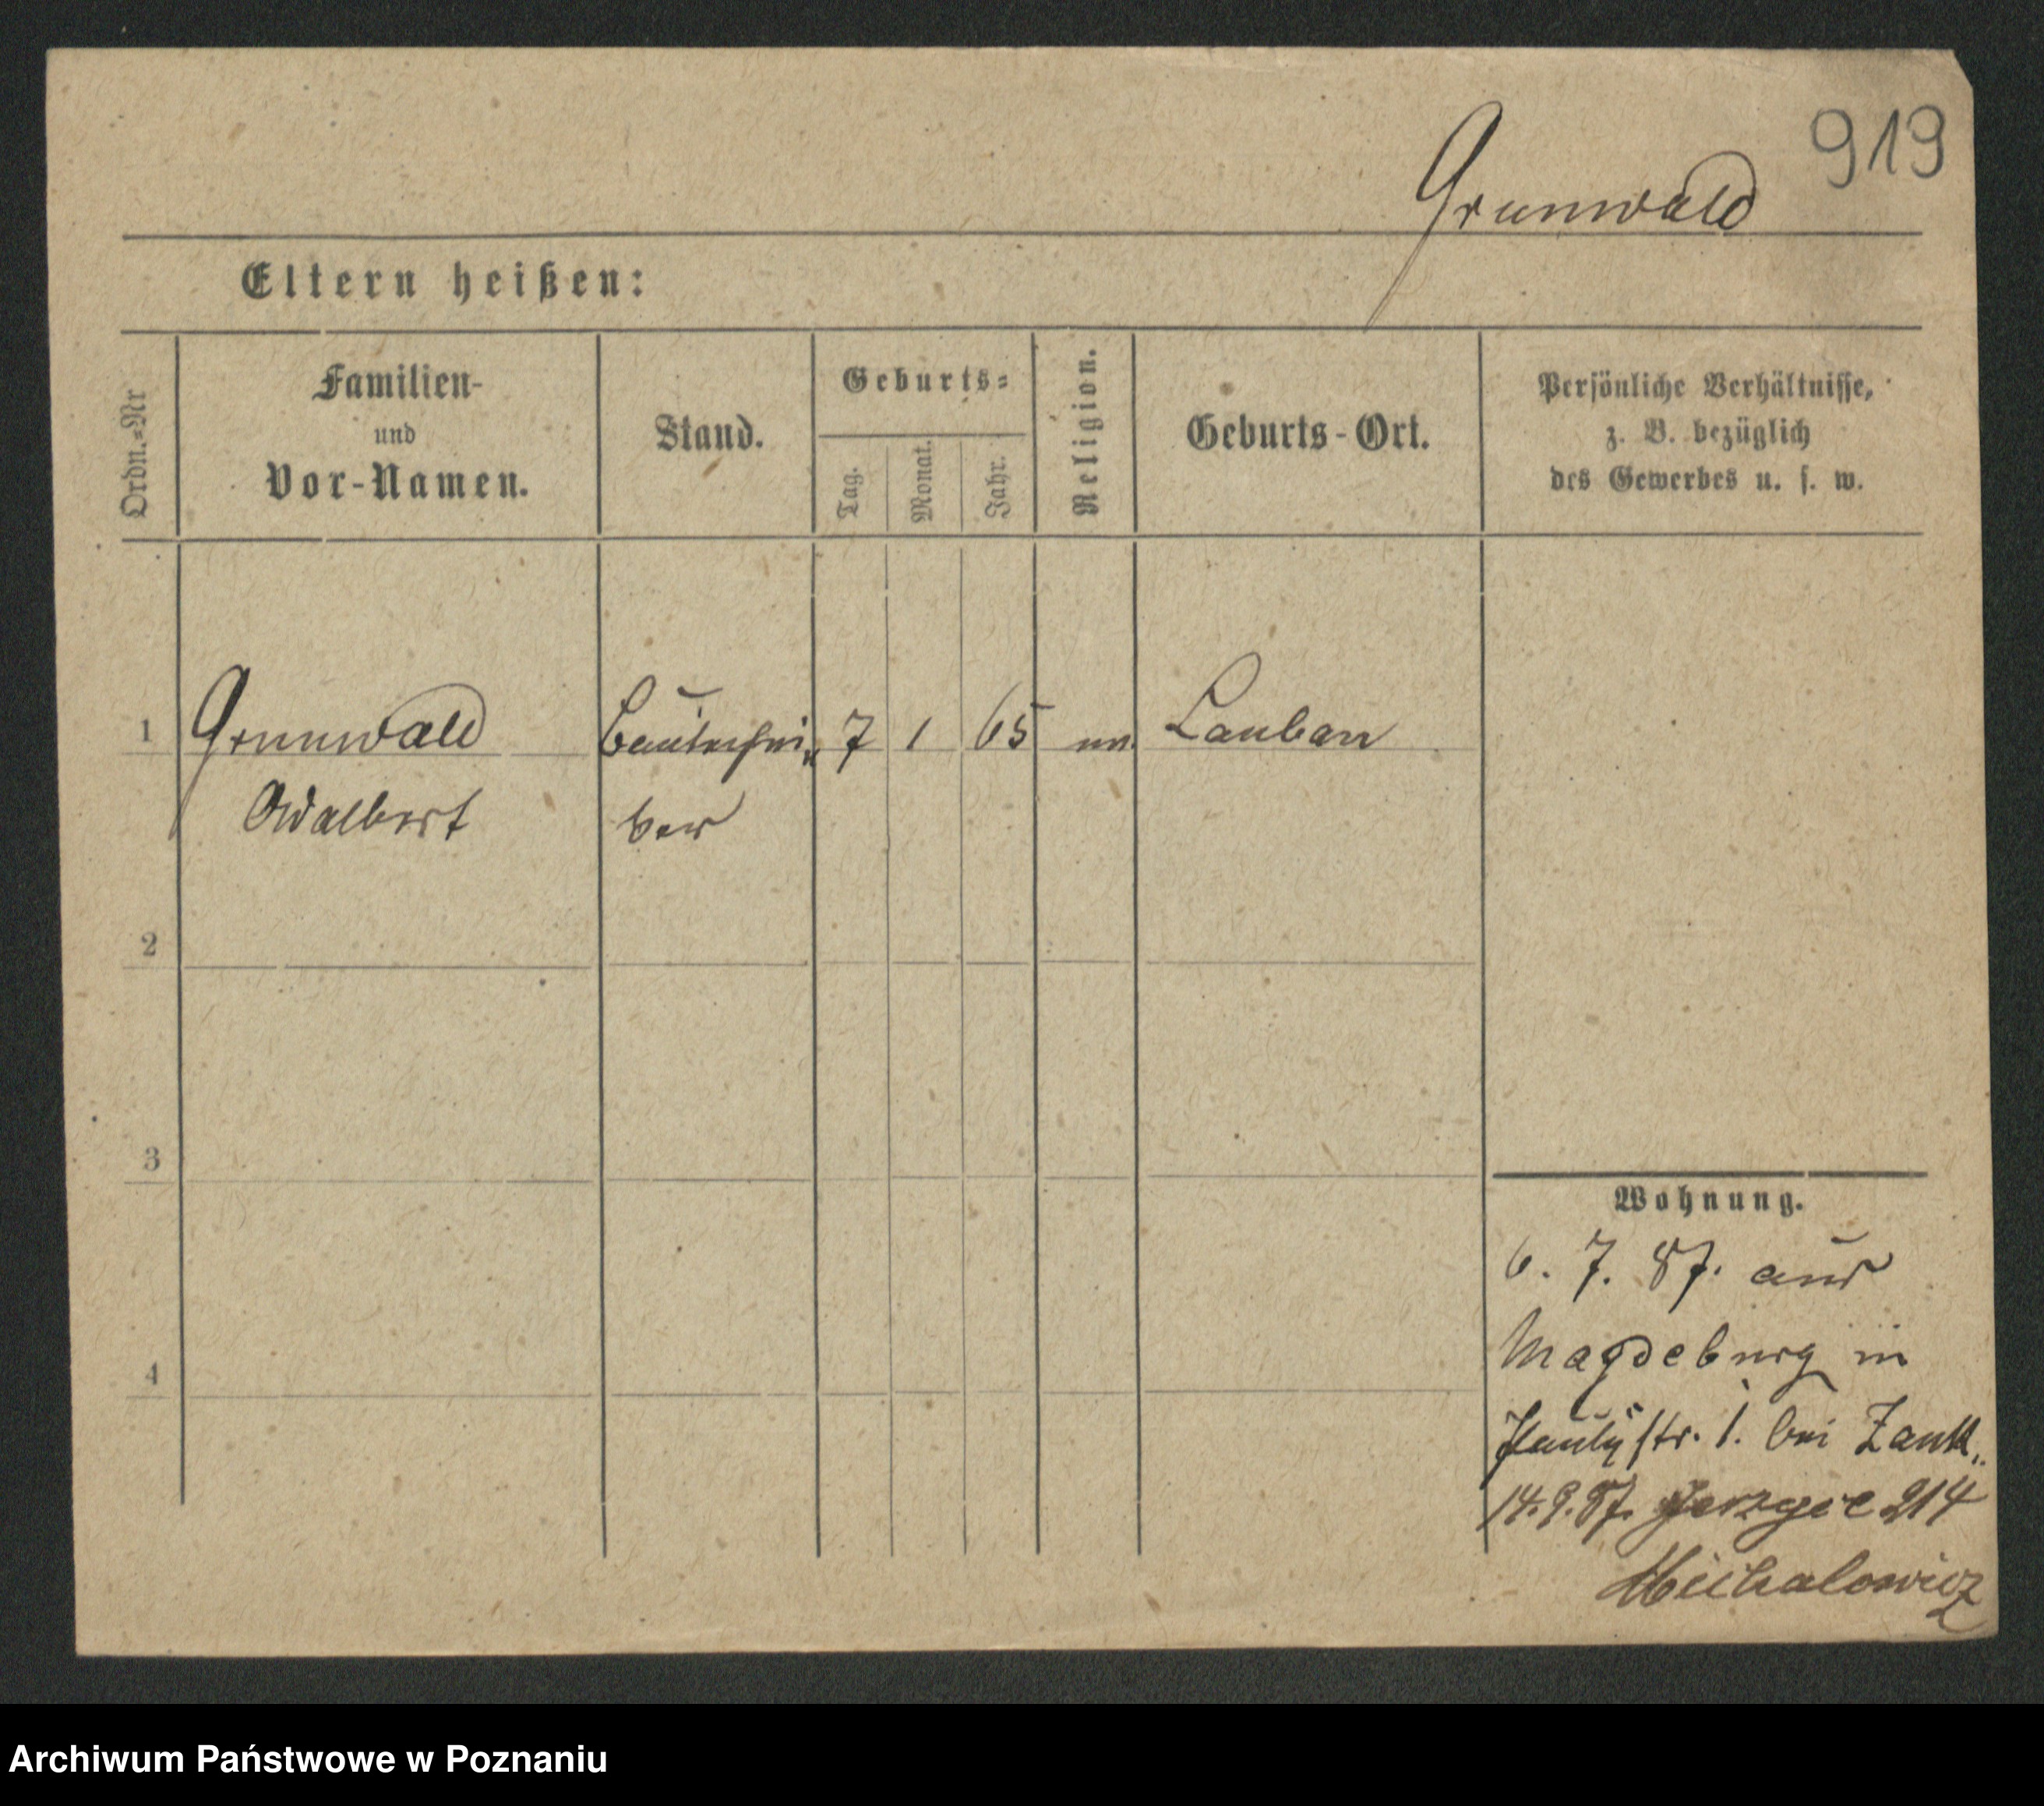 919
Grunwald
Eltern heißen:
Ordn.-Nr
Familien-
und
Vor-Namen.
Stand.
Geburts-
Tag.
Monat.
Jahr.
Religion.
Geburts-Ort.
Persönliche Verhältnisse,
z. B. bezüglich
des Gewerbes u. s. w.
1 Grunwald 7 1 65 Lauban
Adalbert ber
2
3
4
Wohnung.
6. 7. 87. aus
Magdeburg in
Paulistr. 1. bei Zank.
14.9.87. 214
Michalowicz
Archiwum Państwowe w Poznaniu